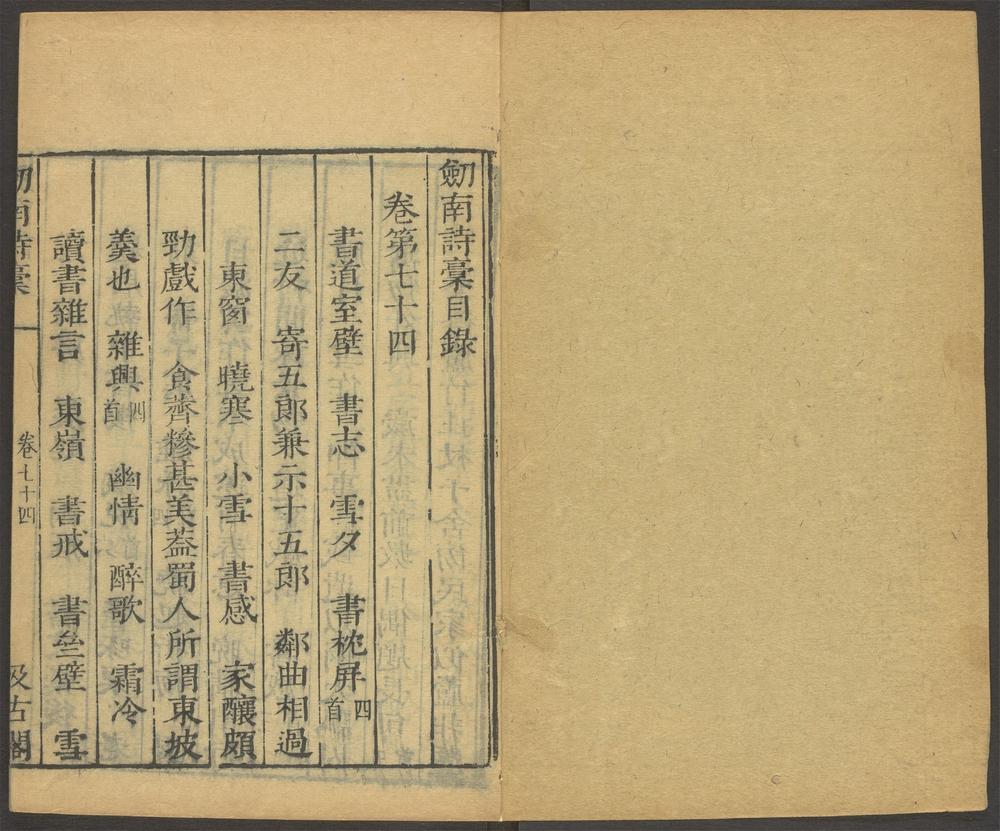 劎南詩稾目錄
卷第七十四
書道室壁　書志　雪夕　書枕屏四首
二友　寄五郎兼示十五郎　鄰曲相過
東窗　曉寒　小雪　書感　家釀頗
勁戲作　食薺糝甚美葢蜀人所謂東坡
羹也　雜興四首　幽情　醉歌　霜冷
讀書雜言　東嶺　書戒　書壁　雪
劎南詩稾　卷七十四　汲古閣